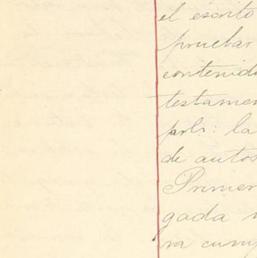 el escrito
pruebas
contenido
testamen
de autos
Primer
gada
ra cump